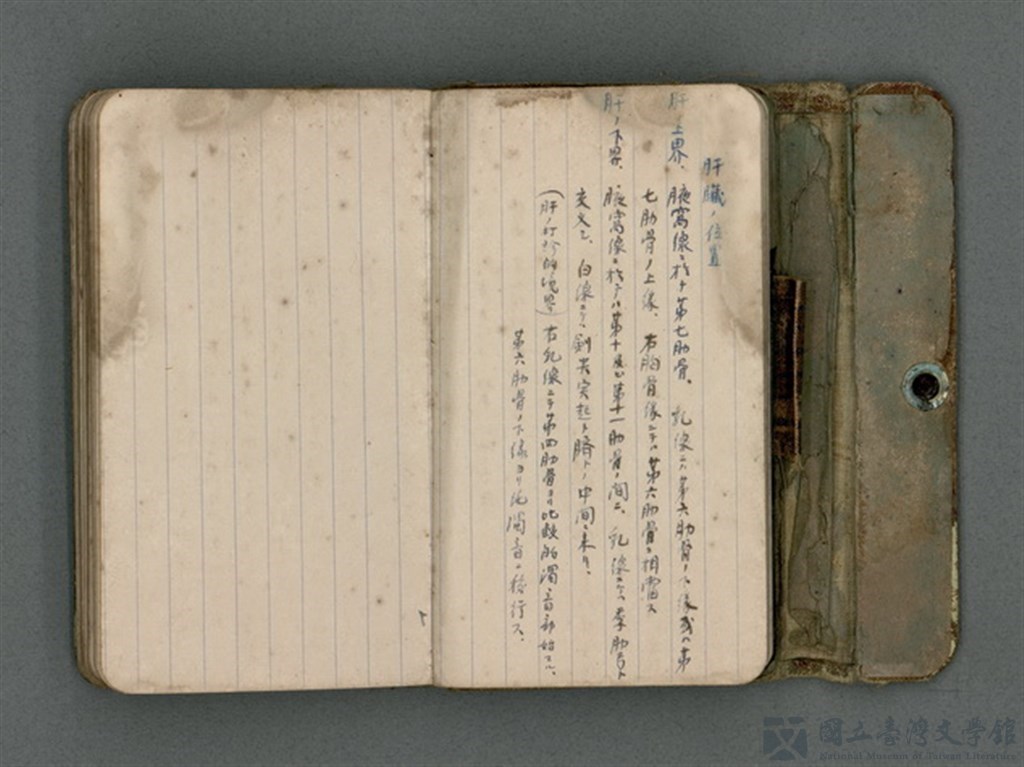 肝臓ノ位置
肝ノ上界、腋窩線ニ於テ第七肋骨、乳線ニハ第六肋骨ノ下縁或ハ第
七肋骨ノ上縁、右胸骨縁ニテハ第六肋骨ニ相當ス
肝ノ下界、腋窩線ニ於テハ第十及ビ第十一肋骨ノ間ニ、乳線ニテハ季肋弓ト
交叉シ、白線ニテハ劍尖突起ト臍トノ中間ニ来リ、
(肝ノ打診的境界)右乳線ニテ第四肋骨ヨリ比較的濁音部始マル、
第六肋骨ノ下縁ヨリ絶濁音ニ移行ス、
國立臺灣文學館
National Museum of Taiwan Literature